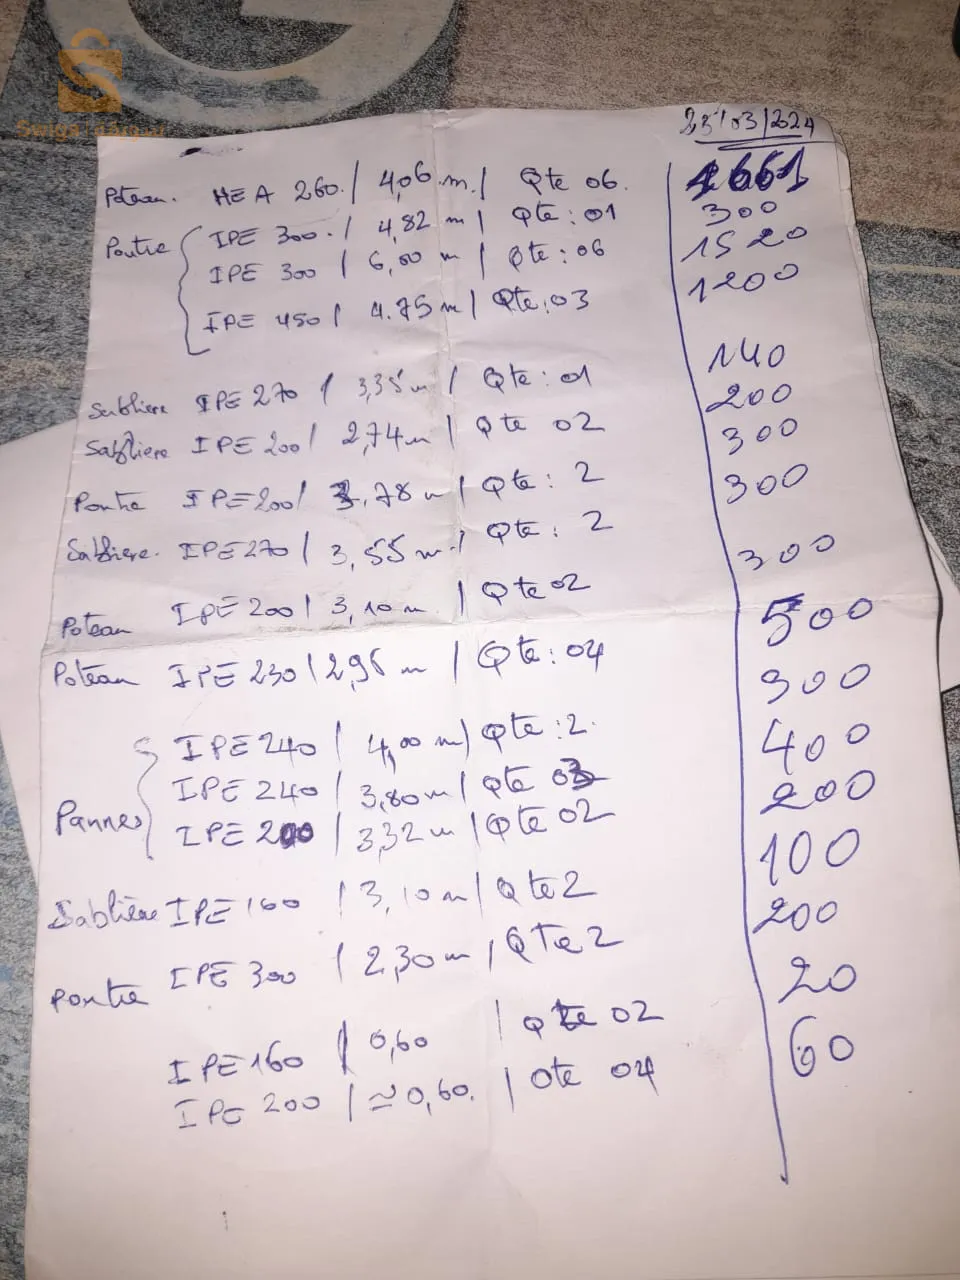 23/03/2024
Poteau. HEA 260. / 4,06 m. / Qte 06. 1661
Poutre IPE 300. / 4,82 m / Qte: 01 300
IPE 300 / 6,00 m / Qte: 06 1520
IPE 450 / 4.75 m / Qte: 03 1200
Sablière IPE 270 / 3,35 m / Qte: 01 140
Sablière IPE 200 / 2,74 m / Qte 02 200
Poutre IPE 200 / 3.78 m / Qte: 2 300
Sablière. IPE 270 / 3,55 m. / Qte: 2 300
Poteau IPE 200 / 3,10 m. / Qte 02 300
Poteau IPE 230 / 2,95 m / Qte: 04 500
IPE 240 / 4,00 m / Qte: 2. 300
IPE 240 / 3,80 m / Qte 03 400
Pannes IPE 200 / 3,32 m / Qte 02 200
Sablière IPE 160 / 3,10 m / Qte 2 100
Poutre IPE 300 / 2,30 m / QTe 2 200
IPE 160 / 0,60 / Qte 02 20
IPE 200 / ≈ 0,60. / Qte 04 60